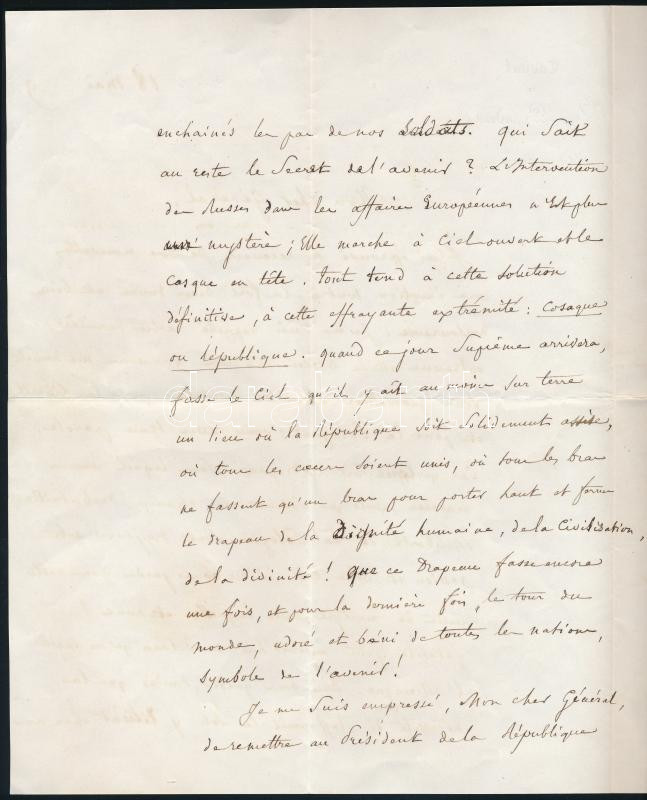 enchainés les pas de nos soldats. qui sait
au reste le Secret de l'avenir ? L'Intervention
des Russes dans les affaires Européennes n'est plus
mystère ; Elle marche à Ciel ouvert et le
Casque en tête. tout tend à cette solution
définitive, à cette effrayante extrémité : Cosaque
ou République. quand ce jour Suprême arrivera,
fasse le Ciel qu'il y ait au moins sur terre
un lieu où la République soit solidement assise,
où tous les cœurs soient unis, où tous les bras
ne fassent qu'un bras pour porter haut et ferme
le drapeau de la Dignité humaine, de la Civilisation,
de la divinité ! que ce Drapeau fasse encore
une fois, et pour la dernière fois, le tour du
monde, adoré et béni de toutes les nations,
symbole de l'avenir !
Je me suis empressé, Mon cher Général,
de remettre au Président de la République